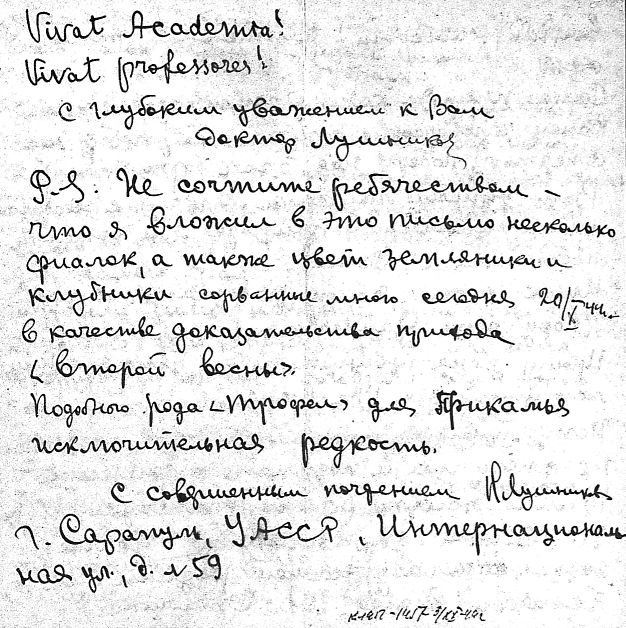 Vivat Academia!
Vivat professores!
С глубоким уважением к Вам
Доктор Лушников
P.S. Не сочтите ребячеством –
что я вложил в это письмо несколько
фиалок, а также цвет земляники и
клубники сорванные мною сегодня 20/X 44г.
в качестве доказательства прихода
«второй весны».
Подобного рода «трофеи» для Прикамья
исключительная редкость.
С совершенным почтением Лушников
г. Сарапул, УАССР, Интернациональ
ная ул., д. № 59